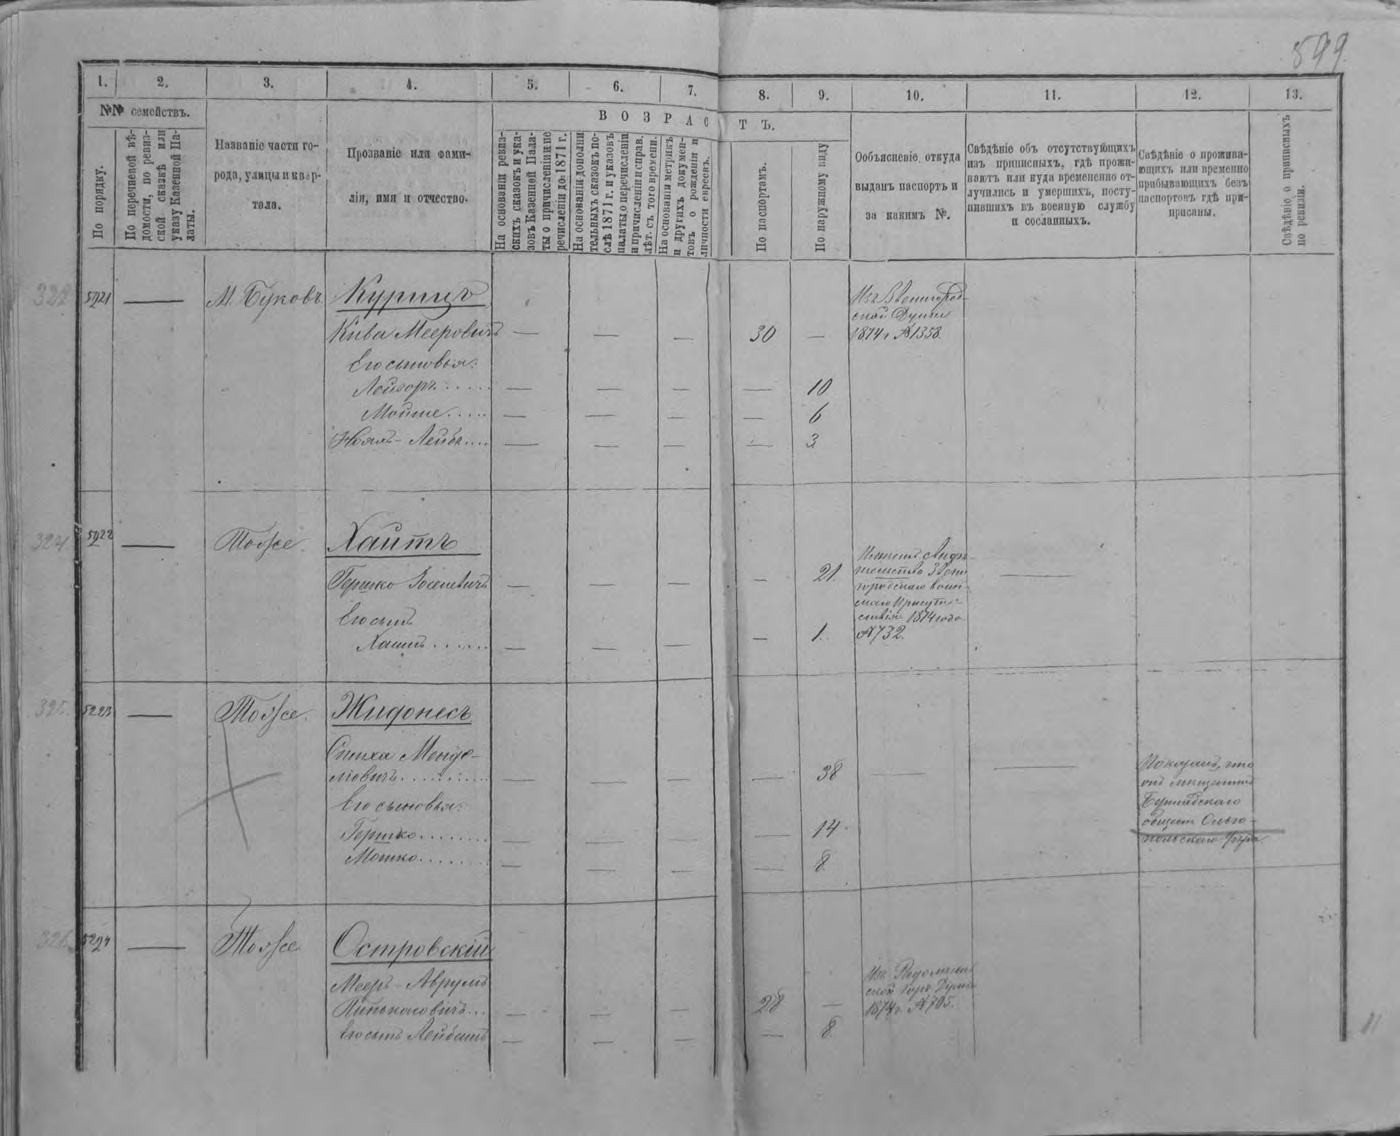 599
1. 2. 3. 4. 5. 6. 7. 8. 9. 10. 11. 12. 13.
№№ семействъ.
По порядку.
По перечневой вѣ-
домости, по ревиз-
ской сказкѣ или
указу Казенной Па-
латы.
Названіе части го-
рода, улицы и квар-
тала.
Прозваніе или фами-
лія, имя и отчество.
ВОЗРАСТЪ.
На основаніи ревиз-
скихъ сказокъ и ука-
зовъ Казенной Пала-
ты о причисленіи и пе
речисленіи до 1871 г.
На основаніи дополни
тельныхъ сказокъ по-
слѣ 1871 г. и указовъ
палаты о перечисленіи
и причисленіи и справ.
лѣт. съ того времени.
На основаніи метрикъ
и другихъ докумен-
товъ о рожденіи и
личности евреевъ.
По паспортамъ.
По наружному виду
Ообъясненіе, откуда
выданъ паспортъ и
за какимъ №.
Свѣдѣніе объ отсутствующихъ
изъ приписныхъ, гдѣ прожи-
ваютъ или куда временно от-
лучились и умершихъ, посту-
пившихъ въ военную службу
и сосланныхъ.
Свѣдѣніе о прожива-
ющихъ или временно
прибывающихъ безъ
паспортовъ гдѣ при-
писаны.
Свѣдѣніе о приписныхъ
по ревизіи.
5221 — М. Буковъ Курицъ
Кива Мееровичъ — — — 30 —
1874 г. №1358.
Его сыновья:
Лейзоръ — — — — 10
Мойше — — — — 6
Лейба — — — — 3
324 5222 — Тоже. Хаитъ
Гершко Іоселевичъ — — — — 21.
Его сынъ
Хаимъ — — — — 1.
1874 года
№732.
325. 5223 — Тоже. Жидонесъ
Менде-
левичъ — — — — 38 — —
Его сыновья:
Гершко — — — 14.
Мошко — — — 8.
Показалъ, что
онъ мѣщанинъ
Бершадскаго
общест. Ольго-
польскаго уѣзда.
326. 5224 — Тоже. Островскій
Мееръ-Аврумъ
— — — 28 —
Его сынъ Лейбишъ — — — — 8.
1874 г. №705.